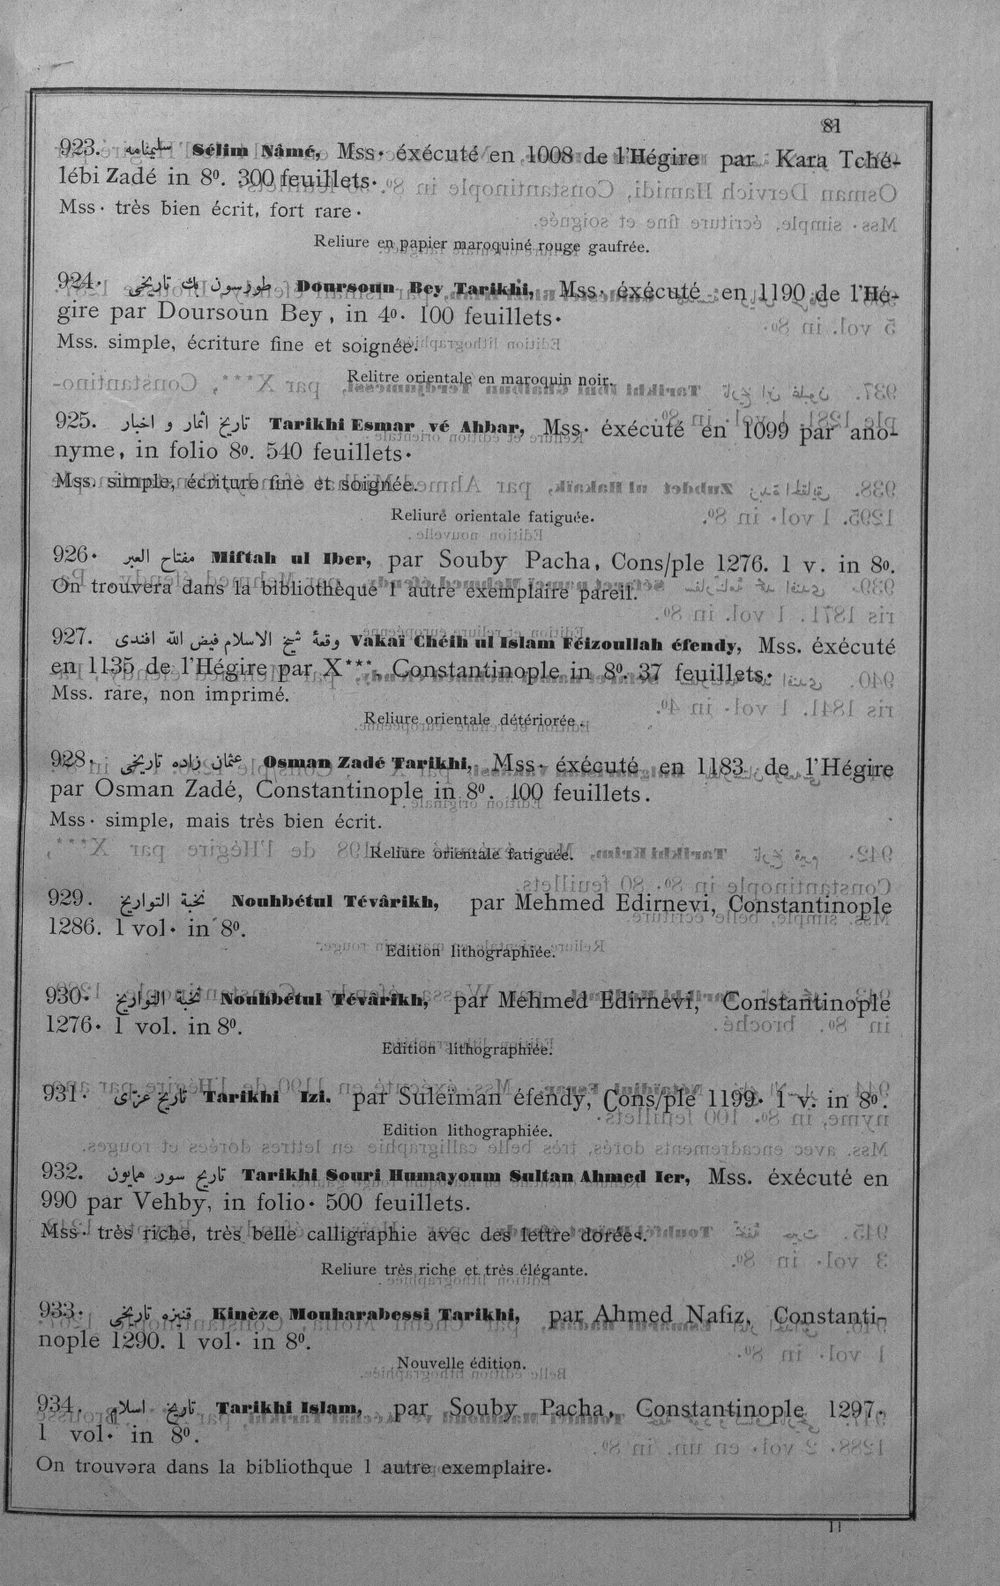 81
923. سليمنامه Sélim Nâmé, Mss· éxécuté en 1008 de l'Hégire par Kara Tché-
lébi Zadé in 8º. 300 feuillets·
Mss· très bien écrit, fort rare·
Reliure en papier maroquiné rouge gaufrée.
924· طورسون بك تاريخى Doursoun Bey Tarikhi, Mss· éxécuté en 1190 de l'Hé-
gire par Doursoun Bey, in 4º· 100 feuillets·
Mss. simple, écriture fine et soignée·
Relitre orientale en maroquin noir.
925. تاريخ اثمار و اخبار Tarikhi Esmar vé Ahbar, Mss· éxécuté en 1099 par ano-
nyme, in folio 8º. 540 feuillets·
Mss. simple, écriture fine et soignée.
Reliure orientale fatiguée.
926· مفتاح العبر Miftah ul Iber, par Souby Pacha, Cons/ple 1276. 1 v. in 8º.
On trouvera dans la bibliothèque 1 autre exemplaire pareil.
927. وقعۀ شيخ الاسلام فيض الله افندى Vakaï Chéih ul Islam Féizoullah éfendy, Mss. éxécuté
en 1135 de l'Hégire par X***. Constantinople in 8º. 37 feuillets·
Mss. rare, non imprimé.
Reliure orientale détériorée.
928· عثمان زاده تاريخى Osman Zadé Tarikhi, Mss· éxécuté en 1183 de l'Hégire
par Osman Zadé, Constantinople in 8º. 100 feuillets.
Mss· simple, mais très bien écrit.
Reliure orientale fatiguée.
929. نخبة التواريخ Nouhbétul Tévârikh, par Mehmed Edirnevi, Constantinople
1286. 1 vol· in 8º.
Edition lithographiée.
930· نخبة التواريخ Nouhbétul Tévârikh, par Mehmed Edirnevi, Constantinople
1276· 1 vol. in 8º.
Edition lithographiée.
931· تاريخ عزاى Tarikhi Izi. par Suleïman éfendy, Cons/ple 1199· 1 v. in 8º.
Edition lithographiée.
932. تاريخ سور همايون Tarikhi Souri Humayoum Sultan Ahmed Ier, Mss. éxécuté en
990 par Vehby, in folio· 500 feuillets.
Mss· très riche, très belle calligraphie avec des lettre dorées.
Reliure très riche et très élégante.
933· تاريخى Kinèze Mouharabessi Tarikhi, par Ahmed Nafiz, Constanti-
nople 1290. 1 vol· in 8º.
Nouvelle édition.
934. تاريخ اسلام Tarikhi Islam, par Souby Pacha, Constantinople 1297·
1 vol· in 8º.
On trouvəra dans la bibliothque 1 autre exemplaire·
11